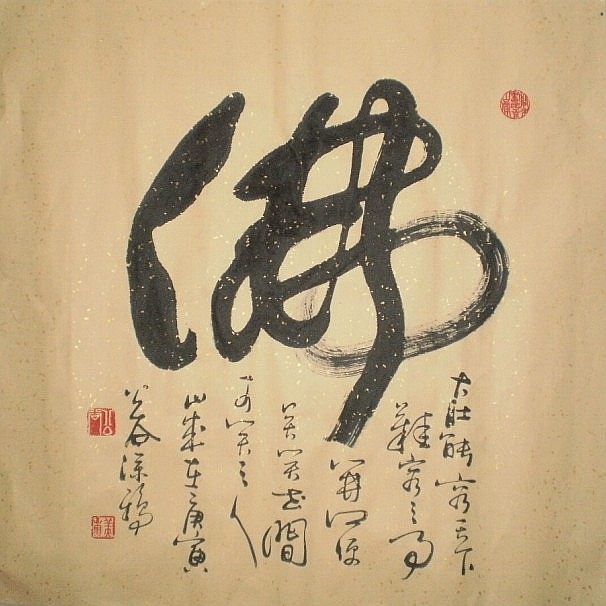 佛
大肚能容天下
難容之事
開口便
笑笑世間
可笑之人
歲在庚寅